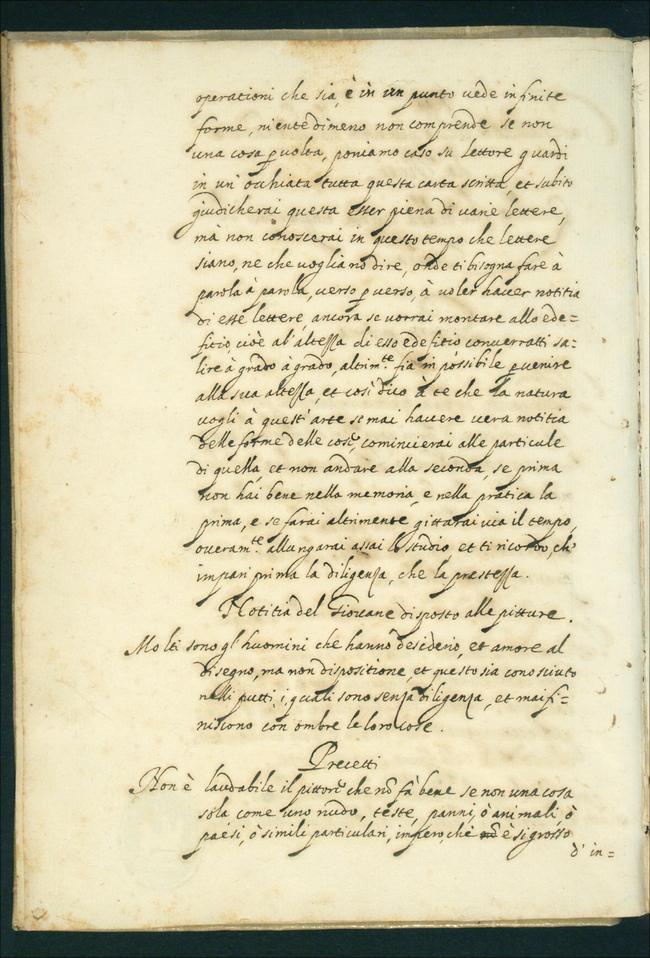 operationi che sia, è in un punto vede infinite
forme, nientedimeno non comprende se non
una cosa p volta, poniamo caso su lettore guardi
in un' occhiata tutta questa carta scritta, et subito
giudicherai questa esser piena di varie lettere,
mà non conoscerai in questo tempo che lettere
siano, ne che vogliano dire, onde ti bisogna fare à
parola à parola, verso p verso, à voler haver notitia
di esse lettere, ancora se vorrai montare allo ede=
fitio cioè al'altezza di esso edefitio converratti sa=
lire à grado à grado, altrim.te fia impossibile pvenire
alla sua altezza, et cosi dico à te che la natura
vogli à quest'arte se mai havere vera notitia
delle forme delle cose, comincierai alle particule
di quella, et non andare alla seconda, se prima
non hai bene nella memoria, e nella pratica la
prima, e se farai altrimente gittarai via il tempo,
overam.te allungarai assai lo studio, et ti ricordo, ch'
impari prima la diligenza, che la prestezza.
Notitia del Giovane disposto alle pitture.
Molti sono gl' huomini che hanno desiderio, et amore al
disegno, ma non dispositione, et questo sia conosciuto
nelli putti, i quali sono senza diligenza, et mai fi=
niscono con ombre le loro cose.
Precetti
Non è laudabile il pittore che nō fà bene se non una cosa
sola come uno nudo, teste, panni, ò animali, ò
paesi, ò simili particulari, impero, che è si grosso
d' in=